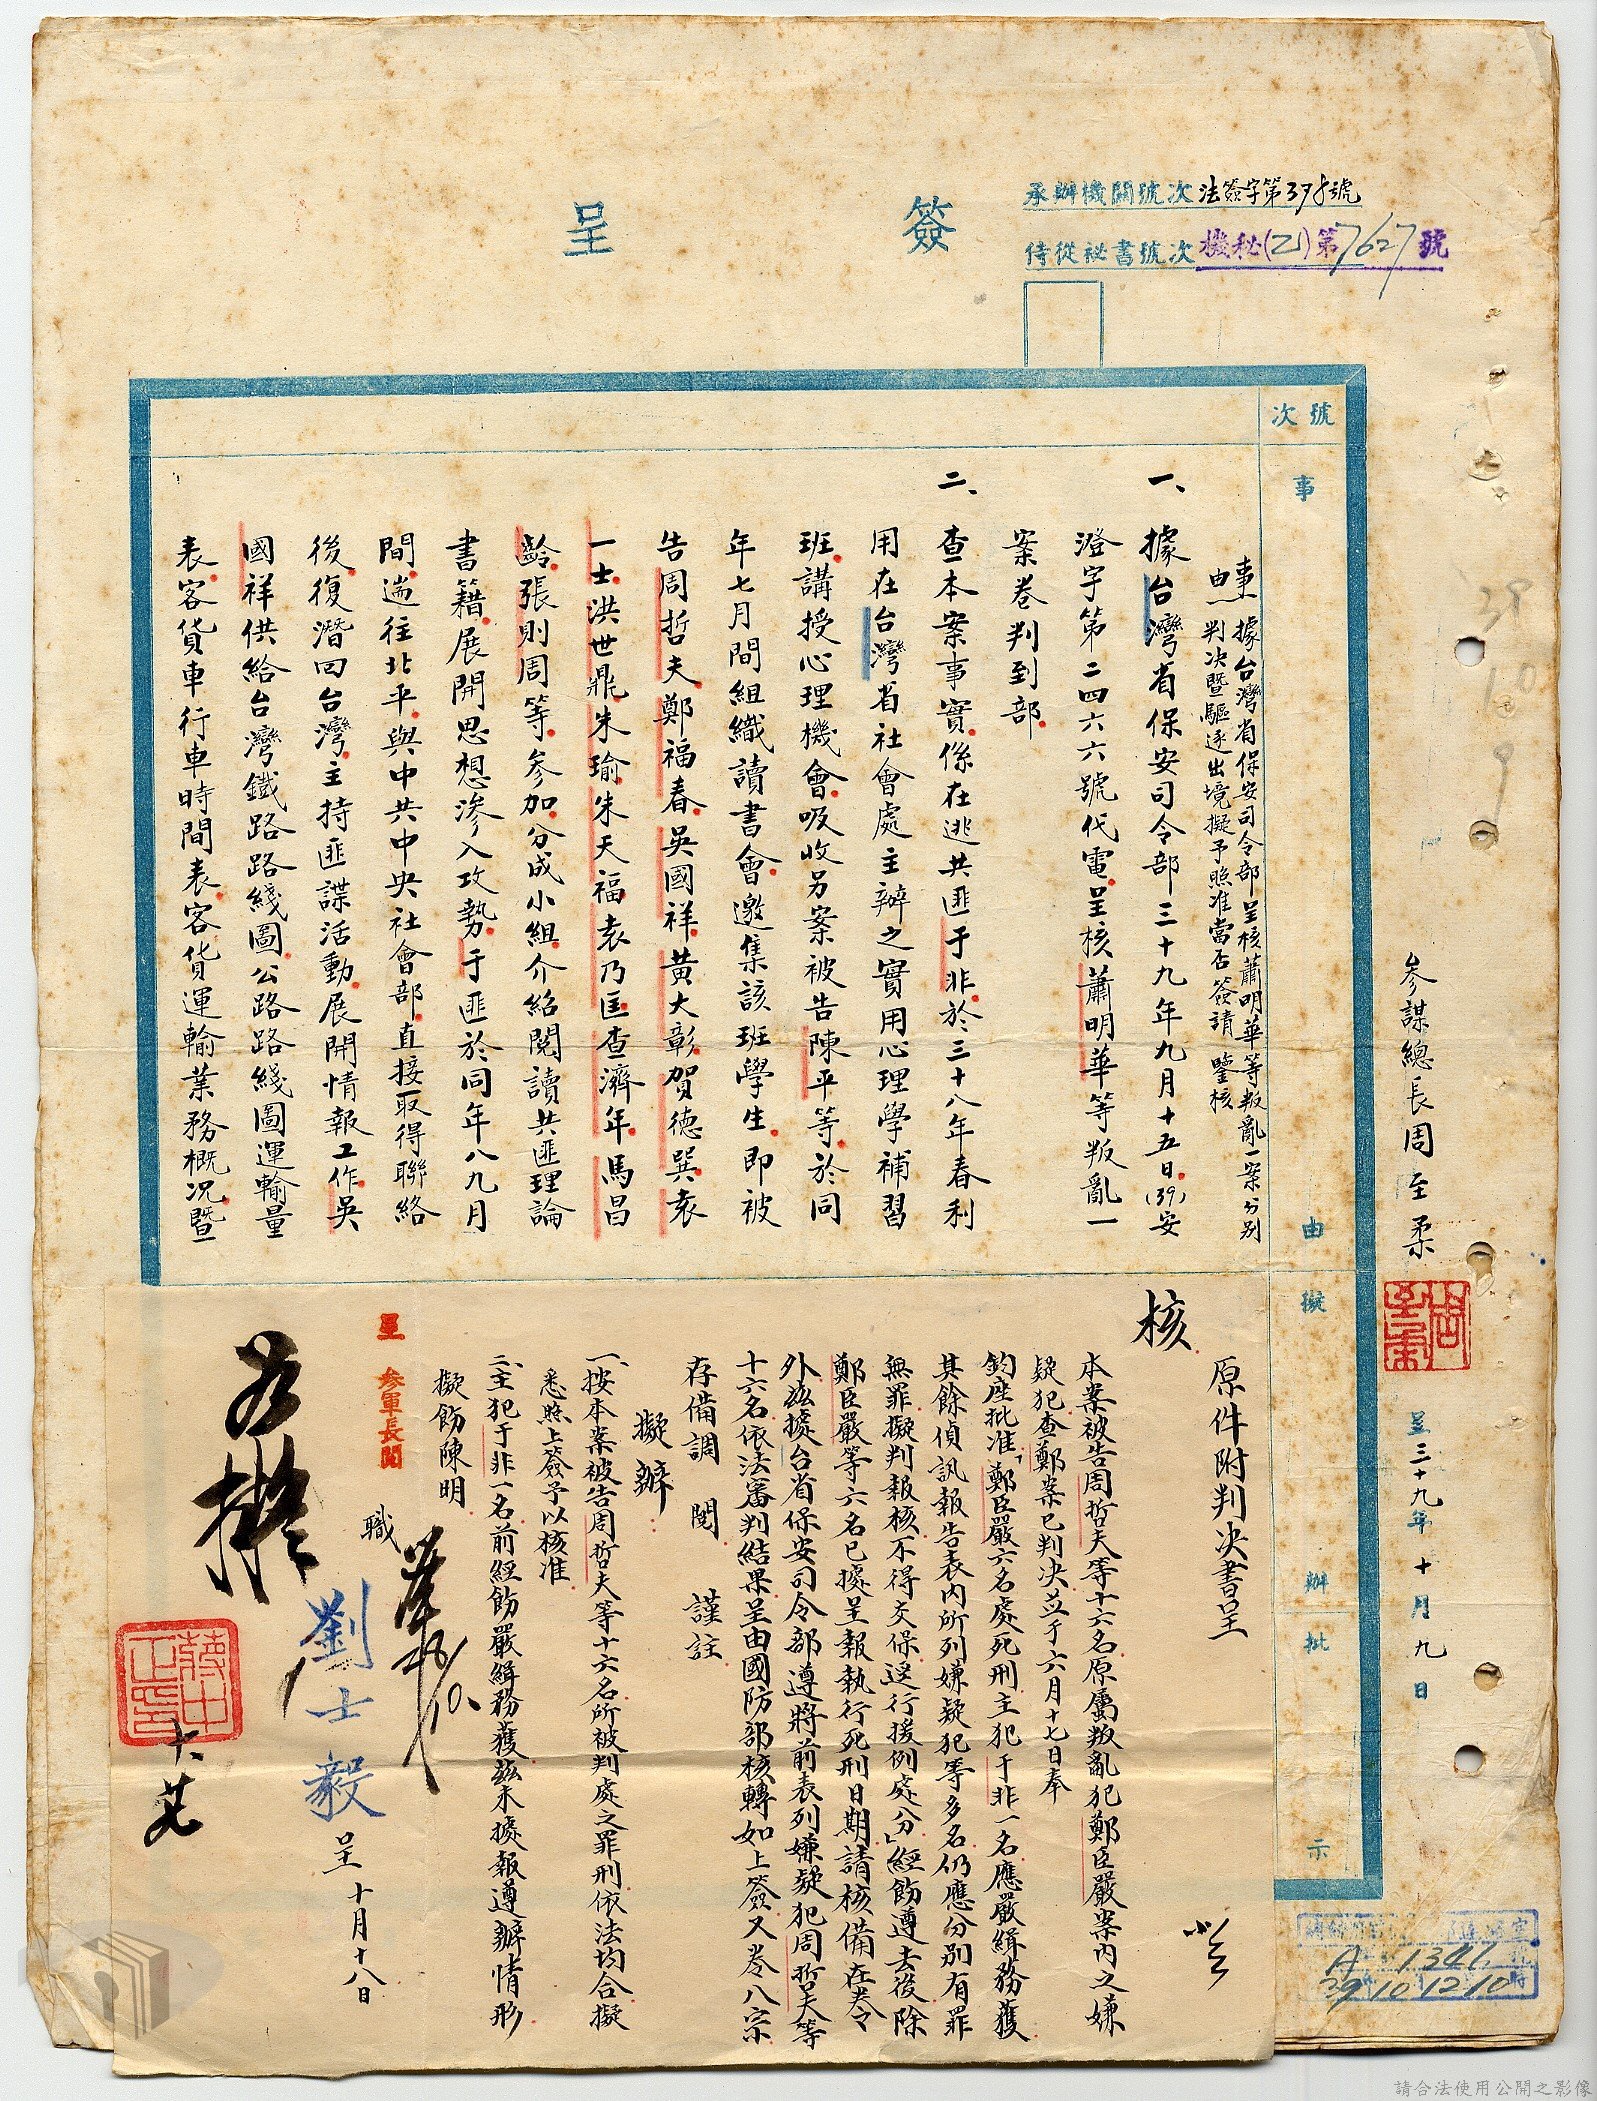 簽呈
承辦機關號次 法簽字第398號
侍從祕書號次 機秘(乙)第7627號
參謀總長周至柔
呈三十九年十月九日
號次
事由
擬辦
批示
事由:據台灣省保安司令部呈核蕭明華等叛亂一案分别
判決暨驅逐出境擬予照准當否簽請 鑒核
一、據台灣省保安司令部三十九年九月十五日(39)安
澄字第二四六六號代電呈核蕭明華等叛亂一
案卷判到部
二、查本案事實係在逃共匪于非於三十八年春利
用在台灣省社會處主辦之實用心理學補習
班講授心理機會吸收另案被告陳平等於同
年七月間組織讀書會邀集該班學生即被
告周哲夫鄭福春吳國祥黃大彰賀德巽袁
一士洪世鼎朱瑜朱天福袁乃匡查濟年馬昌
齡張則周等參加分成小組介紹閱讀共匪理論
書籍展開思想滲入攻勢于匪於同年八九月
間遄往北平與中共中央社會部直接取得聯絡
後復潛回台灣主持匪諜活動展開情報工作吳
國祥供給台灣鐵路路綫圖公路路綫圖運輸量
表客貨車行車時間表客貨運輸業務概況暨
原件附判決書呈
核
本案被告周哲夫等十六名原屬叛亂犯鄭臣嚴案內之嫌
疑犯查鄭案已判決並于六月十七日奉
鈞座批准「鄭臣嚴六名處死刑主犯于非一名應嚴緝務獲
其餘偵訊報告表內所列嫌疑犯等多名仍應分別有罪
無罪擬判報核不得交保逕行援例處分」經飭遵去後除
鄭臣嚴等六名已據呈報執行死刑日期請核備在卷今
外茲據台省保安司令部遵將前表列嫌疑犯周哲夫等
十六名依法審判結果呈由國防部核轉如上簽又卷八宗
存備調 閱 謹註
擬辦
一、按本案被告周哲夫等十六名所被判處之罪刑依法均合擬
悉照上簽予以核准
二、主犯于非一名前經飭嚴緝務獲茲未據報遵辦情形
擬飭陳明
呈 參軍長閱
職
劉士毅 呈十月十八日
如擬
蔣中正印
周至柔
A 1347
39 10 12 10
請合法使用公開之影像